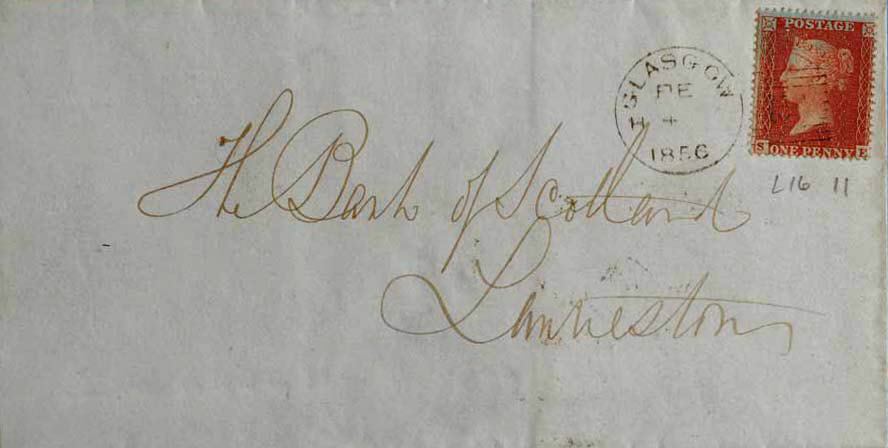 POSTAGE
ONE PENNY
S E
GLASGOW
4
1856
L16 11
The Bank of Scotland